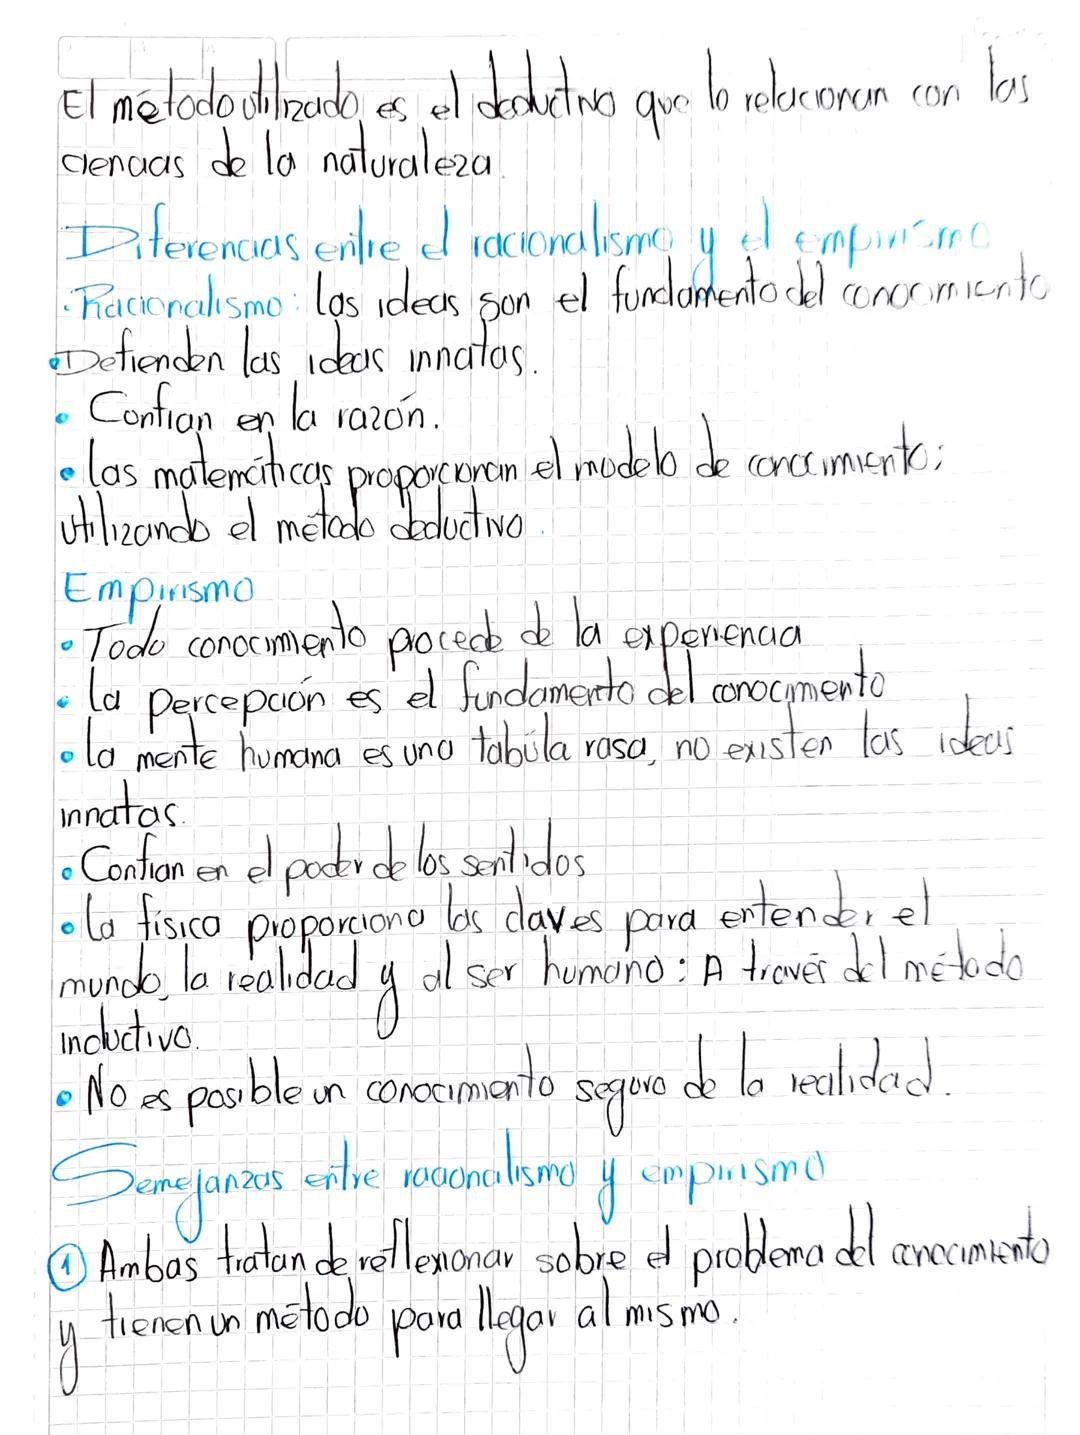 El método utilizado es el deductivo que lo relacionan con las
ciencias de la naturaleza.
Diferencias entre el racionalismo y el empirismo
· Racionalismo: las ideas son el fundamento del conocimiento
• Defienden las ideas innatas.
• Confian en la razón.
• las matemáticas proporcionan el modelo de conocimiento;
utilizando el método deductivo.
Empirismo
• Todo conocimiento procede de la experiencia
• la percepción es el fundamento del conocimiento
• la mente humana es una tabúla rasa, no existen las ideas
innatas.
• Confian en el poder de los sentidos
• la física proporciona las claves para entender el
mundo, la realidad y al ser humano: A través del método
inductivo.
• No es posible un conocimiento seguro de la realidad.
Semejanzas entre racionalismo y empirismo
① Ambas tratan de reflexionar sobre el problema del conocimiento
y tienen un método para llegar al mismo.